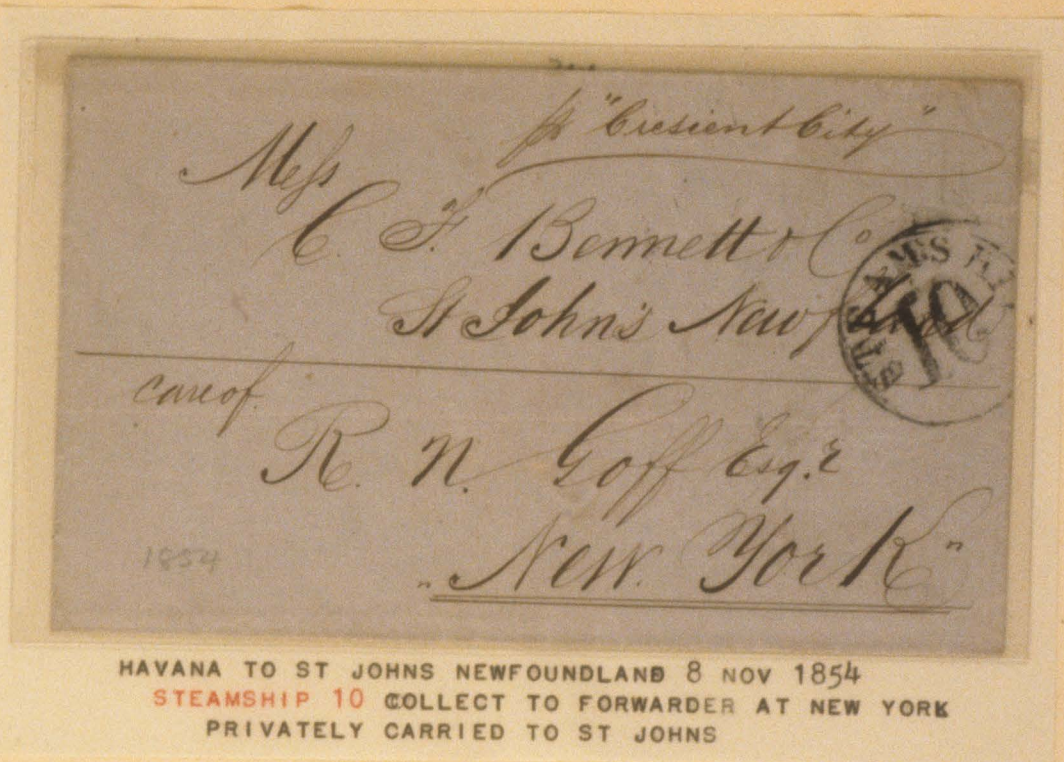 pr "Cresient City"
Mess
C. F. Bennett & Co
St John's Newfland
STEAMSHIP
10
care of
R. N. Goff Esqr
"New York"
1854
HAVANA TO ST JOHNS NEWFOUNDLAND 8 NOV 1854
STEAMSHIP 10 COLLECT TO FORWARDER AT NEW YORK
PRIVATELY CARRIED TO ST JOHNS